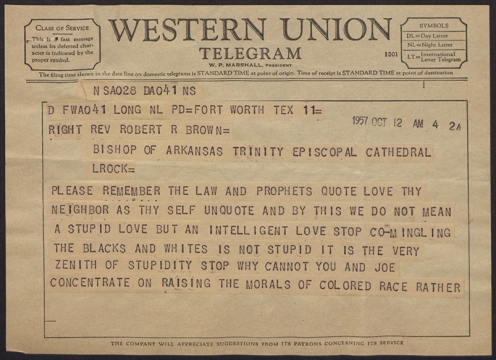 CLASS OF SERVICE
This is a fast message
unless its deferred char-
acter is indicated by the
proper symbol.
WESTERN UNION
TELEGRAM
W. P. MARSHALL, PRESIDENT
1201
SYMBOLS
DL=Day Letter
NL=Night Letter
LT=International Letter Telegram
The filing time shown in the date line on domestic telegrams is STANDARD TIME at point of origin. Time of receipt is STANDARD TIME at point of destination
NSA028 DA041 NS
D FWA041 LONG NL PD=FORT WORTH TEX 11=
1957 OCT 12 AM 4 24
RIGHT REV ROBERT R BROWN=
BISHOP OF ARKANSAS TRINITY EPISCOPAL CATHEDRAL
LROCK=
PLEASE REMEMBER THE LAW AND PROPHETS QUOTE LOVE THY
NEIGHBOR AS THY SELF UNQUOTE AND BY THIS WE DO NOT MEAN
A STUPID LOVE BUT AN INTELLIGENT LOVE STOP CO-MINGLING
THE BLACKS AND WHITES IS NOT STUPID IT IS THE VERY
ZENITH OF STUPIDITY STOP WHY CANNOT YOU AND JOE
CONCENTRATE ON RAISING THE MORALS OF COLORED RACE RATHER
THE COMPANY WILL APPRECIATE SUGGESTIONS FROM ITS PATRONS CONCERNING ITS SERVICE